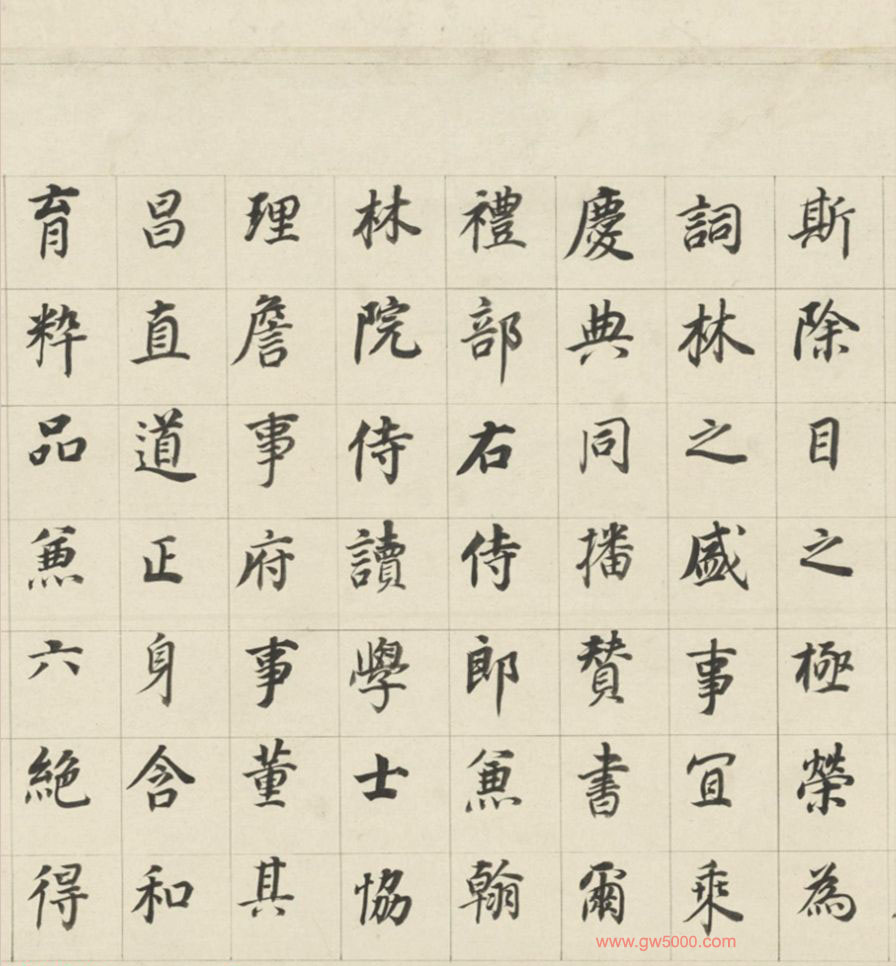 斯除目之極榮為
詞林之盛事宜乘
慶典同播賛書爾
禮部右侍郎兼翰
林院侍讀學士協
理詹事府事董其
昌直道正身含和
育粋品兼六絶得
www.gw5000.com